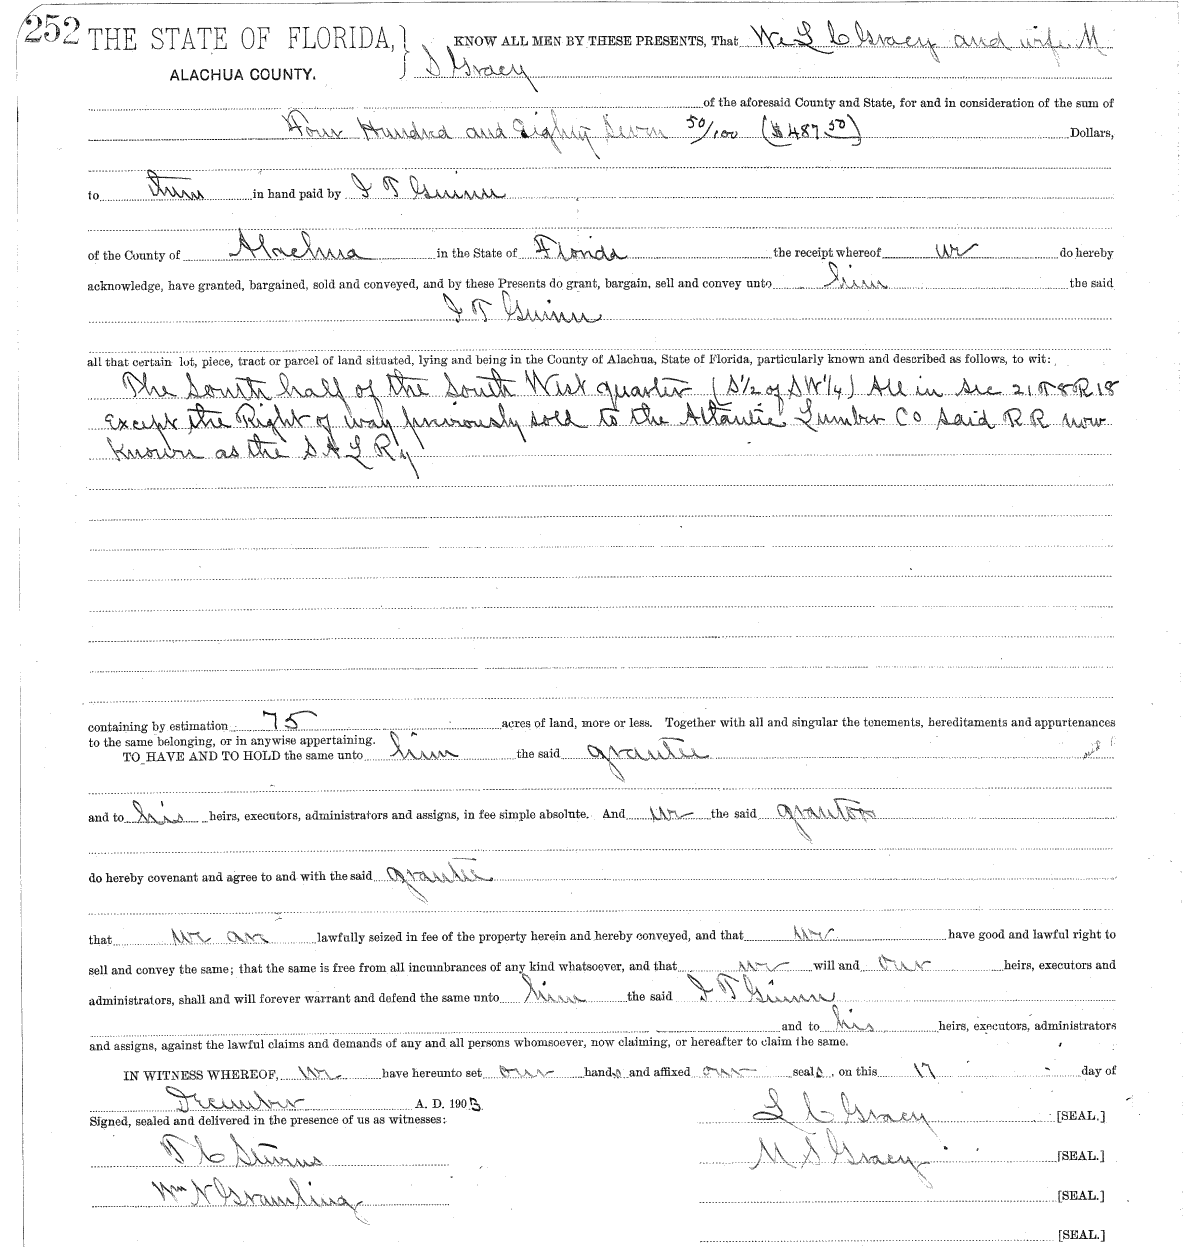 252 THE STATE OF FLORIDA, } KNOW ALL MEN BY THESE PRESENTS, That We L C Gracy and wife M
ALACHUA COUNTY. S Gracy
of the aforesaid County and State, for and in consideration of the sum of
Four Hundred and Eighty Seven 50/100 ($487.50) Dollars,
to them in hand paid by I T Guinn
of the County of Alachua in the State of Florida the receipt whereof we do hereby
acknowledge, have granted, bargained, sold and conveyed, and by these Presents do grant, bargain, sell and convey unto him the said
I T Guinn
all that certain lot, piece, tract or parcel of land situated, lying and being in the County of Alachua, State of Florida, particularly known and described as follows, to wit:
The South half of the South West quarter (S½ of SW¼) All in Sec 21 T 8 R 18
Except the Right of way previously sold to the Atlantic Lumber Co Said R R now
Known as the S A L Ry
containing by estimation 75 acres of land, more or less. Together with all and singular the tenements, hereditaments and appurtenances
to the same belonging, or in anywise appertaining.
TO HAVE AND TO HOLD the same unto him the said grantee
and to his heirs, executors, administrators and assigns, in fee simple absolute. And we the said grantors
do hereby covenant and agree to and with the said grantee
that we are lawfully seized in fee of the property herein and hereby conveyed, and that we have good and lawful right to
sell and convey the same; that the same is free from all incumbrances of any kind whatsoever, and that we will and our heirs, executors and
administrators, shall and will forever warrant and defend the same unto him the said I T Guinn
and to his heirs, executors, administrators
and assigns, against the lawful claims and demands of any and all persons whomsoever, now claiming, or hereafter to claim the same.
IN WITNESS WHEREOF, we have hereunto set our hands and affixed our seals, on this 17 day of
December A. D. 1903
Signed, sealed and delivered in the presence of us as witnesses: L C Gracy [SEAL.]
M S Gracy [SEAL.]
Wm N Gramling [SEAL.]
[SEAL.]